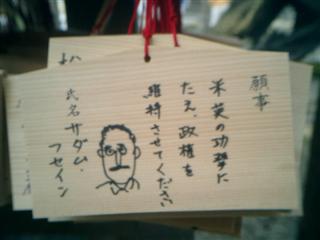 願事
米英の功撃に
たえ、政権を
維持させてください
氏名 サダム・
フセイン